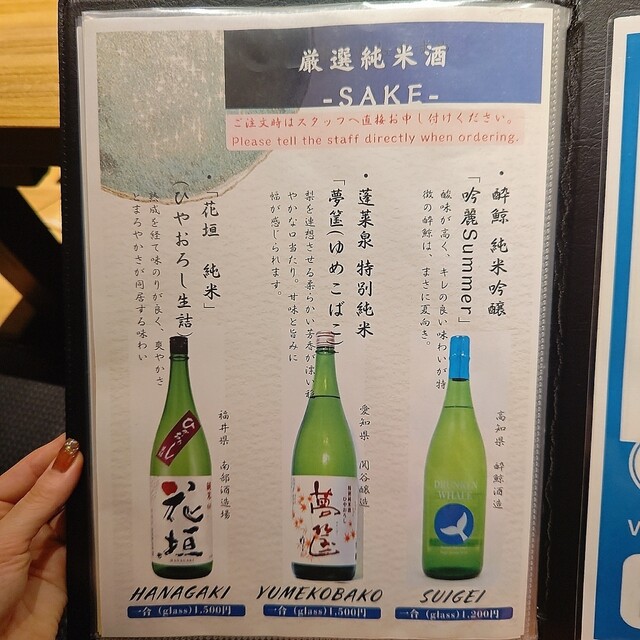 厳選純米酒
-SAKE-
ご注文時はスタッフへ直接お申し付けください。
Please tell the staff directly when ordering.
・酔鯨 純米吟醸
「吟麗Summer」
酸味が高く、キレの良い味わいが特
徴の酔鯨は、まさに夏向き。
高知県 酔鯨酒造
DRUNKEN
WHALE
SUIGEI
一合 (glass) 1,200円
・蓬莱泉 特別純米
「夢筺(ゆめこばこ)
梨を連想させる柔らかい芳香が漂い穏
やかな口当たり。甘味と旨みに
幅が感じられます。
愛知県 関谷醸造
夢筺
YUMEKOBAKO
一合 (glass) 1,500円
・「花垣 純米」
(ひやおろし生詰)
熟成を経て味のりが良く、爽やかさ
とまろやかさが同居する味わい
福井県 南部酒造場
ひやおろし
花垣
HANAGAKI
一合 (glass) 1,500円